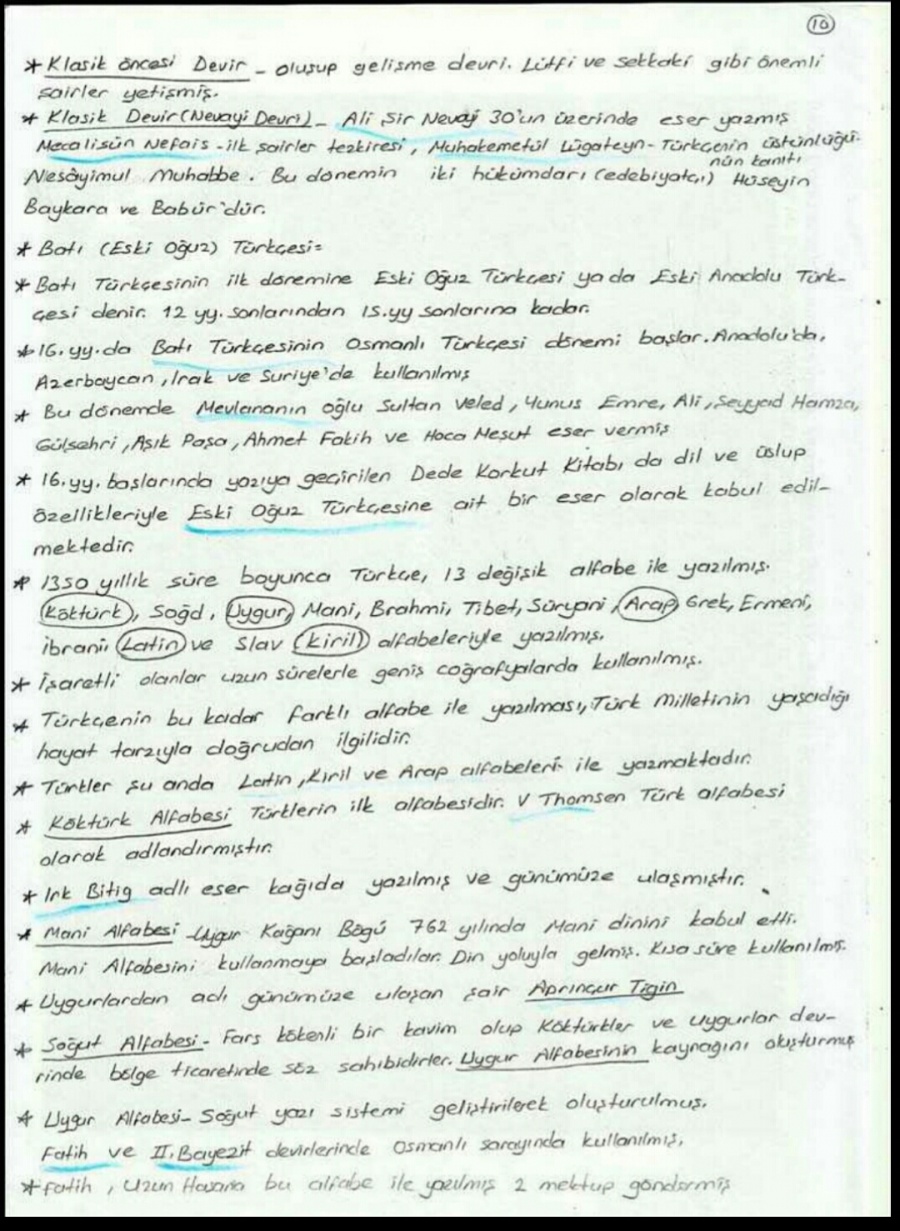 10
* Klasik öncesi Devir - oluşup gelişme devri. Lütfi ve Sekkaki gibi önemli
şairler yetişmiş.
* Klasik Devir (Nevayi Devri) - Ali Şir Nevayi 30'un üzerinde eser yazmış
Mecalisün Nefais - ilk şairler tezkiresi, Muhakemetül Lügateyn - Türkçenin üstünlüğü-
nün kanıtı
Nesâyimul Muhabbe. Bu dönemin iki hükümdarı (edebiyatçı) Hüseyin
Baykara ve Babür'dür.
* Batı (Eski Oğuz) Türkçesi=
* Batı Türkçesinin ilk dönemine Eski Oğuz Türkçesi ya da Eski Anadolu Türk-
çesi denir. 12 yy. sonlarından 15.yy sonlarına kadar.
* 16. yy. da Batı Türkçesinin Osmanlı Türkçesi dönemi başlar. Anadolu'da,
Azerbaycan, Irak ve Suriye'de kullanılmış
* Bu dönemde Mevlananın oğlu Sultan Veled, Yunus Emre, Ali, Seyyad Hamza,
Gülşehri, Aşık Paşa, Ahmet Fakih ve Hoca Mesut eser vermiş
* 16.yy. başlarında yazıya geçirilen Dede Korkut Kitabı da dil ve üslup
özellikleriyle Eski Oğuz Türkçesine ait bir eser olarak kabul edil-
mektedir.
* 1350 yıllık süre boyunca Türkçe, 13 değişik alfabe ile yazılmış.
Köktürk, Soğd, Uygur, Mani, Brahmi, Tibet, Süryani, Arap, Grek, Ermeni,
İbrani, Latin ve Slav (Kiril) alfabeleriyle yazılmış.
* İşaretli olanlar uzun sürelerle geniş coğrafyalarda kullanılmış.
* Türkçenin bu kadar farklı alfabe ile yazılması, Türk Milletinin yaşadığı
hayat tarzıyla doğrudan ilgilidir.
* Türkler şu anda Latin, Kiril ve Arap alfabeleri ile yazmaktadır.
* Köktürk Alfabesi Türklerin ilk alfabesidir. V Thomsen Türk alfabesi
olarak adlandırmıştır.
* Irk Bitig adlı eser kağıda yazılmış ve günümüze ulaşmıştır.
* Mani Alfabesi - Uygur Kağanı Bögü 762 yılında Mani dinini kabul etti.
Mani Alfabesini kullanmaya başladılar. Din yoluyla gelmiş. Kısa süre kullanılmış.
* Uygurlardan adı günümüze ulaşan şair Aprınçur Tigin
* Soğut Alfabesi - Fars kökenli bir kavim olup Köktürkler ve Uygurlar dev-
rinde bölge ticaretinde söz sahibidirler. Uygur Alfabesinin kaynağını oluşturmuş
* Uygur Alfabesi - Soğut yazı sistemi geliştirilerek oluşturulmuş.
Fatih ve II. Bayezit devirlerinde Osmanlı sarayında kullanılmış.
* Fatih, Uzun Hasana bu alfabe ile yazılmış 2 mektup göndermiş